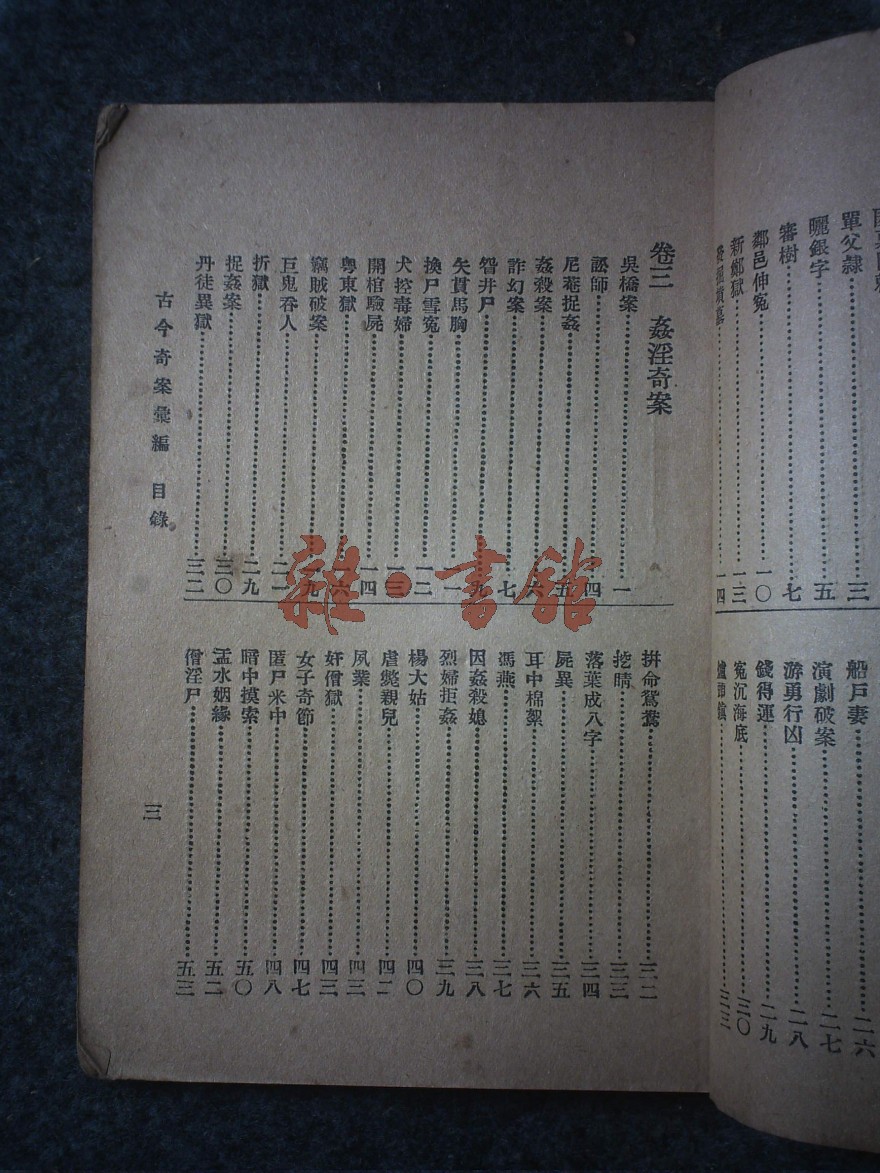 單父隷……三
曬銀字……五
審樹……七
鄰邑伸冤……一〇
新鄭獄……一三
一四
船戶妻……二六
演劇破案……二七
游勇行凶……二八
錢得運……二九
冤沉海底……三〇
三三
卷三　姦淫奇案
吳橋案……一
訟師……四
尼菴捉姦……五
姦殺案……六
詐幻案……七
眢井尸……九
失貫馬胸……一一
換尸雪寃……一二
犬控毒婦……一三
開棺驗屍……一四
粵東獄……一六
竊賊破案……一九
巨鬼吞人……二一
折獄……二九
捉姦案……三〇
丹徒異獄……三二
拚命鴛鴦……三二
挖睛……三三
落葉成八字……三四
屍異……三五
耳中棉絮……三六
馮燕……三七
因姦殺媳……三八
烈婦拒姦……三九
楊大姑……四〇
虐斃親兒……四二
夙業……四三
奸僧獄……四三
女子奇節……四七
匿尸米中……四八
暗中摸索……五〇
盂水姻緣……五二
僧淫尸……五三
古今奇案彙編　目錄
三
雜·書館